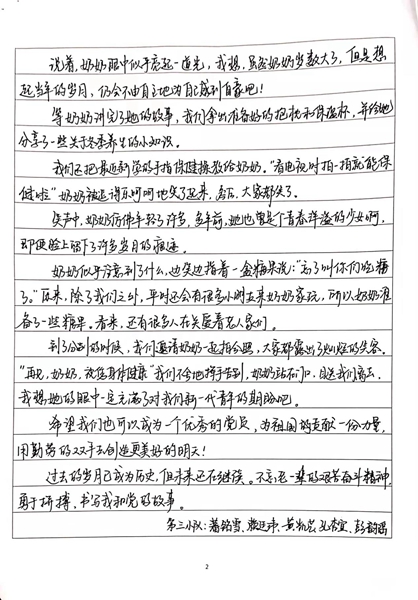 说着，奶奶眼中似乎亮起一道光，我想，虽然奶奶岁数大了，但是想
起当年的岁月，仍会不由自主地为自己感到自豪吧！
等奶奶讲完了她的故事，我们拿出准备好的抱枕和保温杯，并给她
分享了一些关于冬季养生的小知识。
我们还把最近新学的手指保健操教给奶奶。"看电视时拍一拍就能保
健啦"奶奶被逗得乐呵呵地笑了起来，最后，大家都笑了。
笑声中，奶奶仿佛年轻了许多，多年前，她也曾是个青春洋溢的少女啊，
即便脸上留下了许多岁月的痕迹。
奶奶似乎注意到了什么，边笑边指着一盒糖果说："忘了叫你们吃糖
了。"原来，除了我们之外，平时还会有很多小朋友来奶奶家玩，所以奶奶准
备了一些糖果。看来，还有很多人在关爱着老人家们。
到了分别的时候，我们邀请奶奶一起拍合照，大家都露出了灿烂的笑容。
"再见，奶奶，祝您身体健康"我们不舍地挥手告别，奶奶站在门口，目送我们离去，
我想她的眼中一定充满了对我们新一代青年的期盼吧。
希望我们也可以成为一个优秀的党员，为祖国贡献一份力量，
用勤劳的双手去创造更美好的明天！
过去的岁月已成为历史，但未来还在继续。不忘老一辈的艰苦奋斗精神，
勇于拼搏、书写我和党的故事。
第三小队：
2